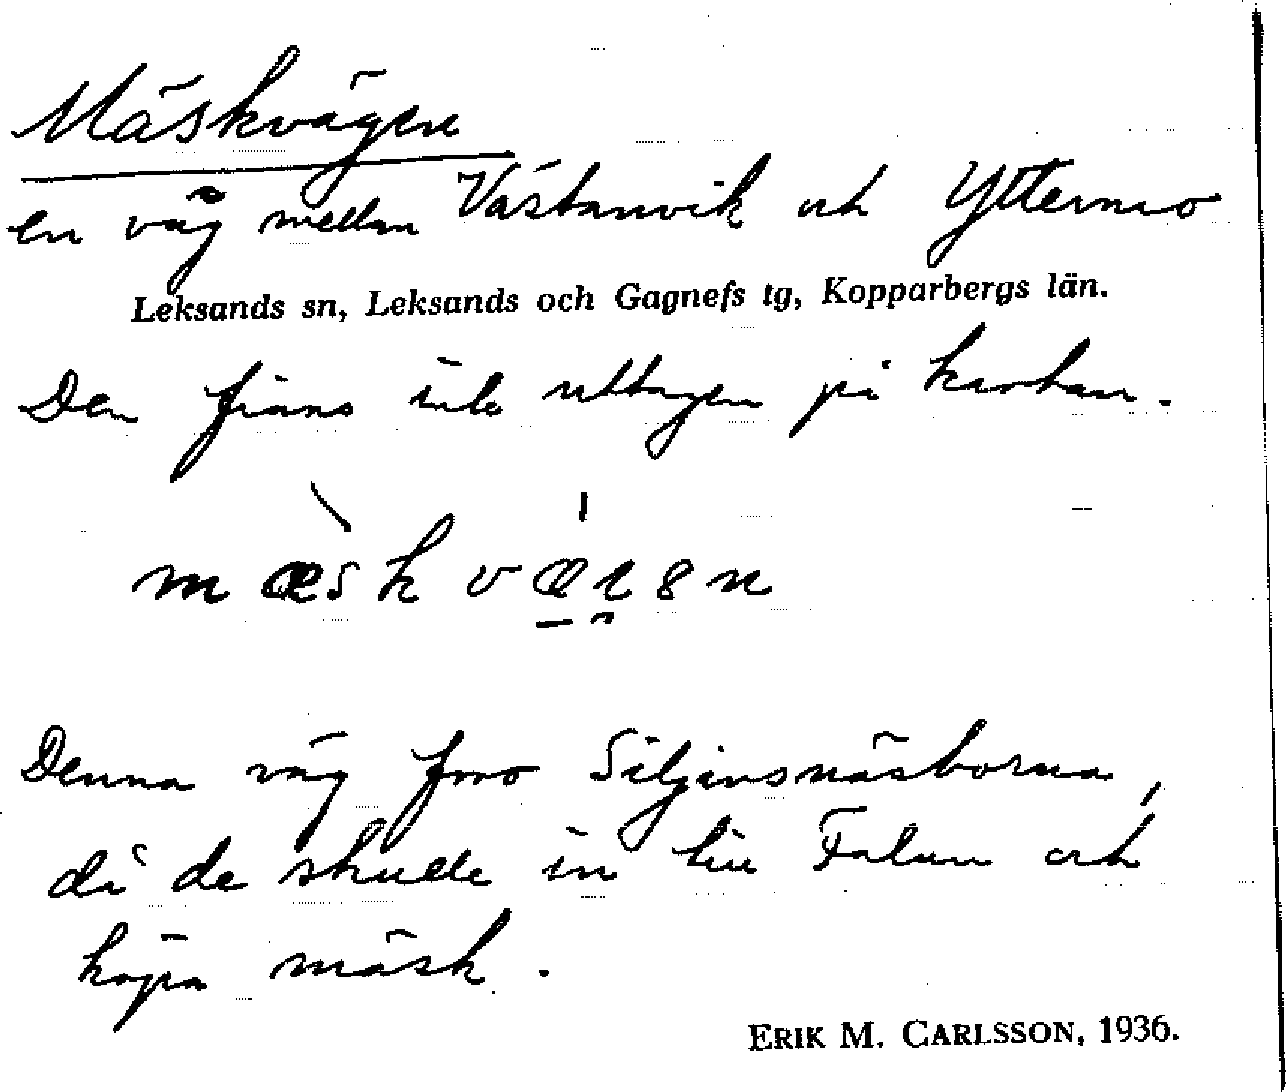 Mäskvägen
en väg mellan Västanvik och Yttermo
Leksands sn, Leksands och Gagnefs tg, Kopparbergs län.
Den finns inte uttagen på kartan.
Denna väg foro Siljansnäsborna,
då de skulle in till Falun och
köpa mäsk.
ERIK M. CARLSSON, 1936.